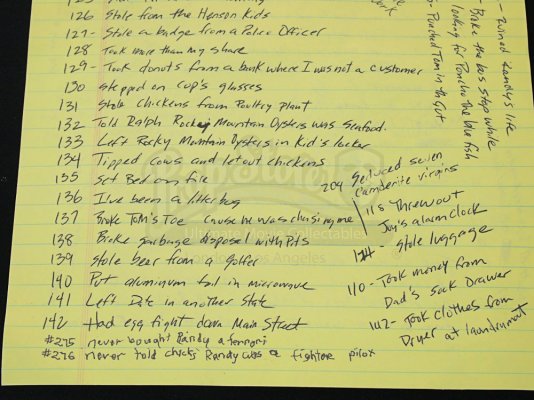 126 Stole from the Henson Kids
127- Stole a badge from a Police Officer
128 Took more than my share
129- Took donuts from a bank where I was not a customer
130 stepped on cop's glasses
131 stole chickens from Poultry plant
132 Told Ralph Rocky Mountain Oysters was seafood.
133 Left Rocky Mountain Oysters in Kid's locker
134 Tipped cows and let out chickens
135 Set Bed on fire
136 I've been a litterbug
137 Broke TOM'S Toe Cause he was chasing me
138 Broke garbage disposel with Pits
139 stole beer from a Golfer
140 Put aluminum foil in microwave
141 Left Date in another State
142 Had egg fight down Main Street
#275 never bought Randy a terrori
#276 never told chicks Randy was a fighter pilot
- ruined Randy's life
- Broke the bus stop while
looking for Poncho the blue fish
- Punched Tom in the Gut
204 Seduced seven
virgins
118 Threw out
Joy's alarm clock
114 - Stole luggage
110 - Took money from
Dad's Sock Drawer
102 - Took clothes from
Dryer at laundrymat
Ultimate Movie Collectables
Los Angeles